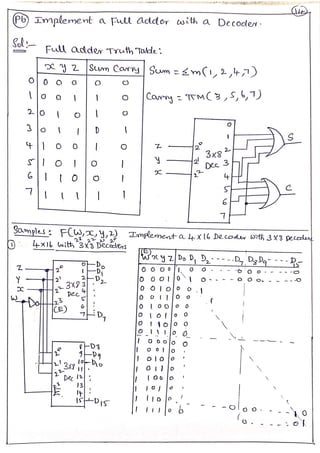 (Pb) Implement a Full Adder with a Decoder.
Sol:-
Full Adder Truth Table:
x y z Sum Carry
0 0 0 0 0 0
1 0 0 1 1 0
2 0 1 0 1 0
3 0 1 1 0 1
4 1 0 0 1 0
5 1 0 1 0 1
6 1 1 0 0 1
7 1 1 1 1 1
Sum = Σm(1, 2, 4, 7)
Carry = πM(3, 5, 6, 7)
z 2⁰
y 2¹
x 2²
3x8
Dec
0
1
2
3
4
5
6
7
S
C
Samples: F(W, x, y, z) Implement a 4x16 Decoder with 3x8 Decoder
① 4x16 with 3x8 Decoders
z 2⁰
y 2¹
x 2²
W
3x8
Dec
(E)
D0
D1
D2
D7
2⁰
2¹
2²
E
3x8
De
8 D8
9 D9
10 D10
11
12
13
14
15 D15
(E)
W x y z D0 D1 D2 ---- D7 D8 D9 ---- D15
0 0 0 0 1 0 0
0 0 0 1 0 1
0 0 1 0 0 0 1
0 0 1 1 0 0
0 1 0 0 0
0 1 0 1 0
0 1 1 0 0
0 1 1 1 0
1 0 0 0
1 0 0 1
1 0 1 0
1 0 1 1
1 1 0 0
1 1 0 1
1 1 1 0
1 1 1 1